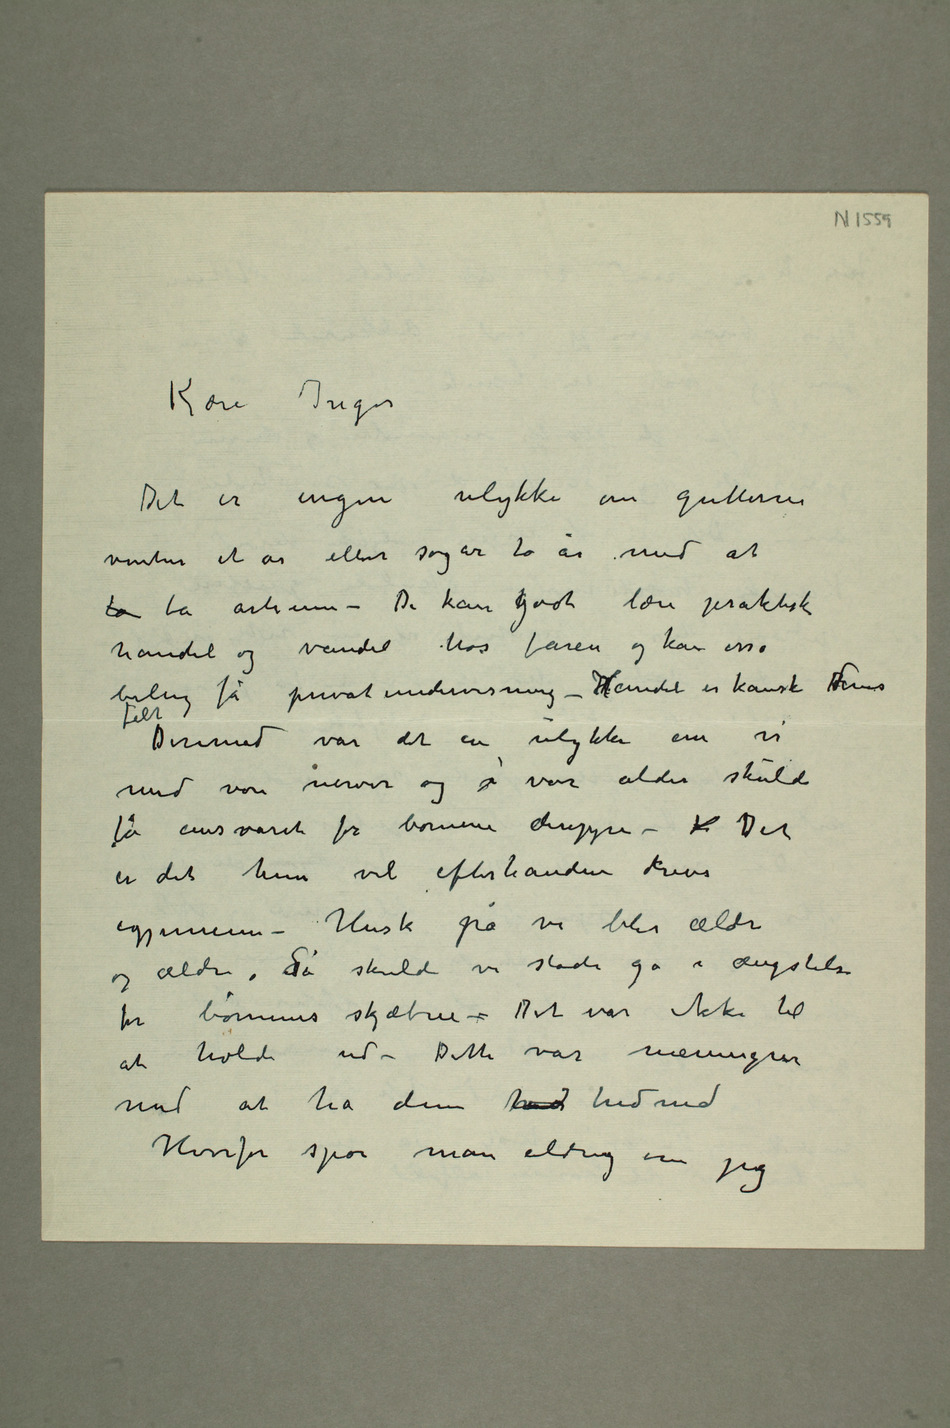 N 1559
Kjære Inger
Det er ingen ulykke om gutterne
venter et år eller sogar to år med at
ta ta artium – De kan godt lære praktisk
handel og vandel hos faren og kan osså
få privatundervisning – Handel er kanske deres
felt
Derimod var det en ulykke om vi
med vore nerver og i vor alder skulde
få ansvaret for børnene deroppe – Det
er det hun vil efterhånden drive
igjennem – Husk på vi blir ældre
og ældre, Så skulde vi stadi gå i ængstelse
for børnenes skjæbne – Det var ikke til
at holde ud – Dette var meningen
med at ha dem hed hed ned
Hvorfor spør man aldrig om jeg